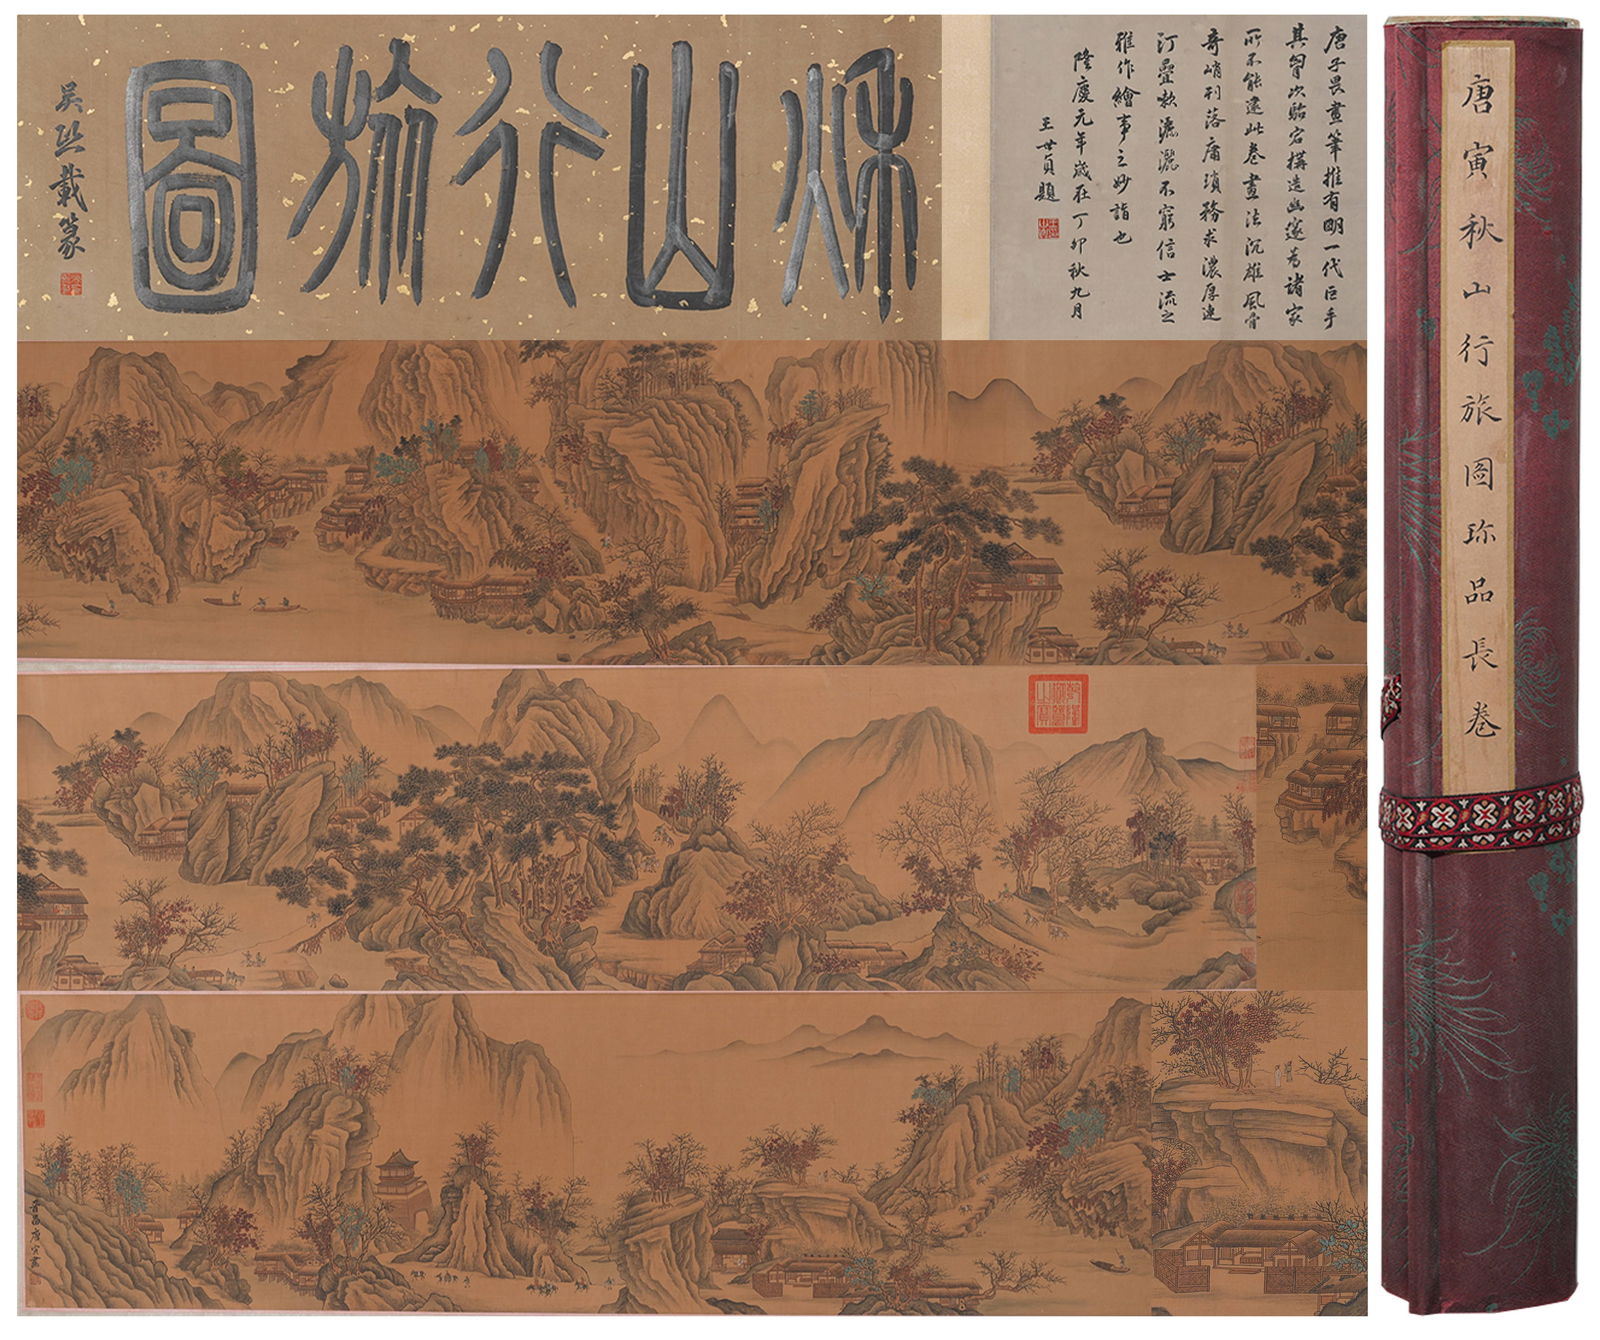 唐寅秋山行旅圖珎品長卷
唐子畏畫筆推有明一代巨手
其胷次駘宕搆造幽邃為諸家
所不能逮此卷畫法沉雄風骨
奇峭刊落庸瑣務求濃厚連
汀疊灑不窮信士流之
雅作繪事之妙詣也
隆慶元年歲在丁卯秋九月
王世貞題
秌山行旅圖
吳熙載篆
乾隆御覽之寶
晉昌唐寅畫